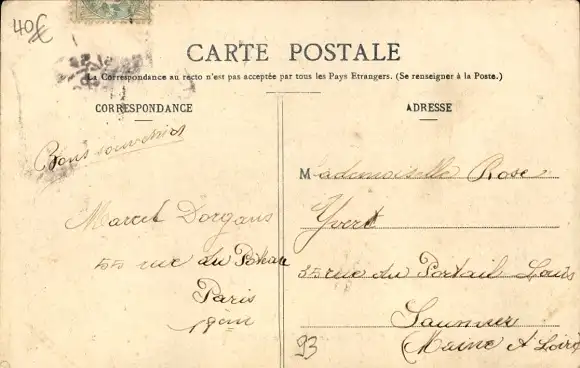 40€
CARTE POSTALE
La Correspondance au recto n'est pas acceptée par tous les Pays Etrangers. (Se renseigner à la Poste.)
CORRESPONDANCE
Bons souvenirs
Marcel Dorgans
55 rue du
Paris
ADRESSE
Mademoiselle Rose
Yvert
35 rue du Portail Louis
Saumur
(Maine et Loire
93